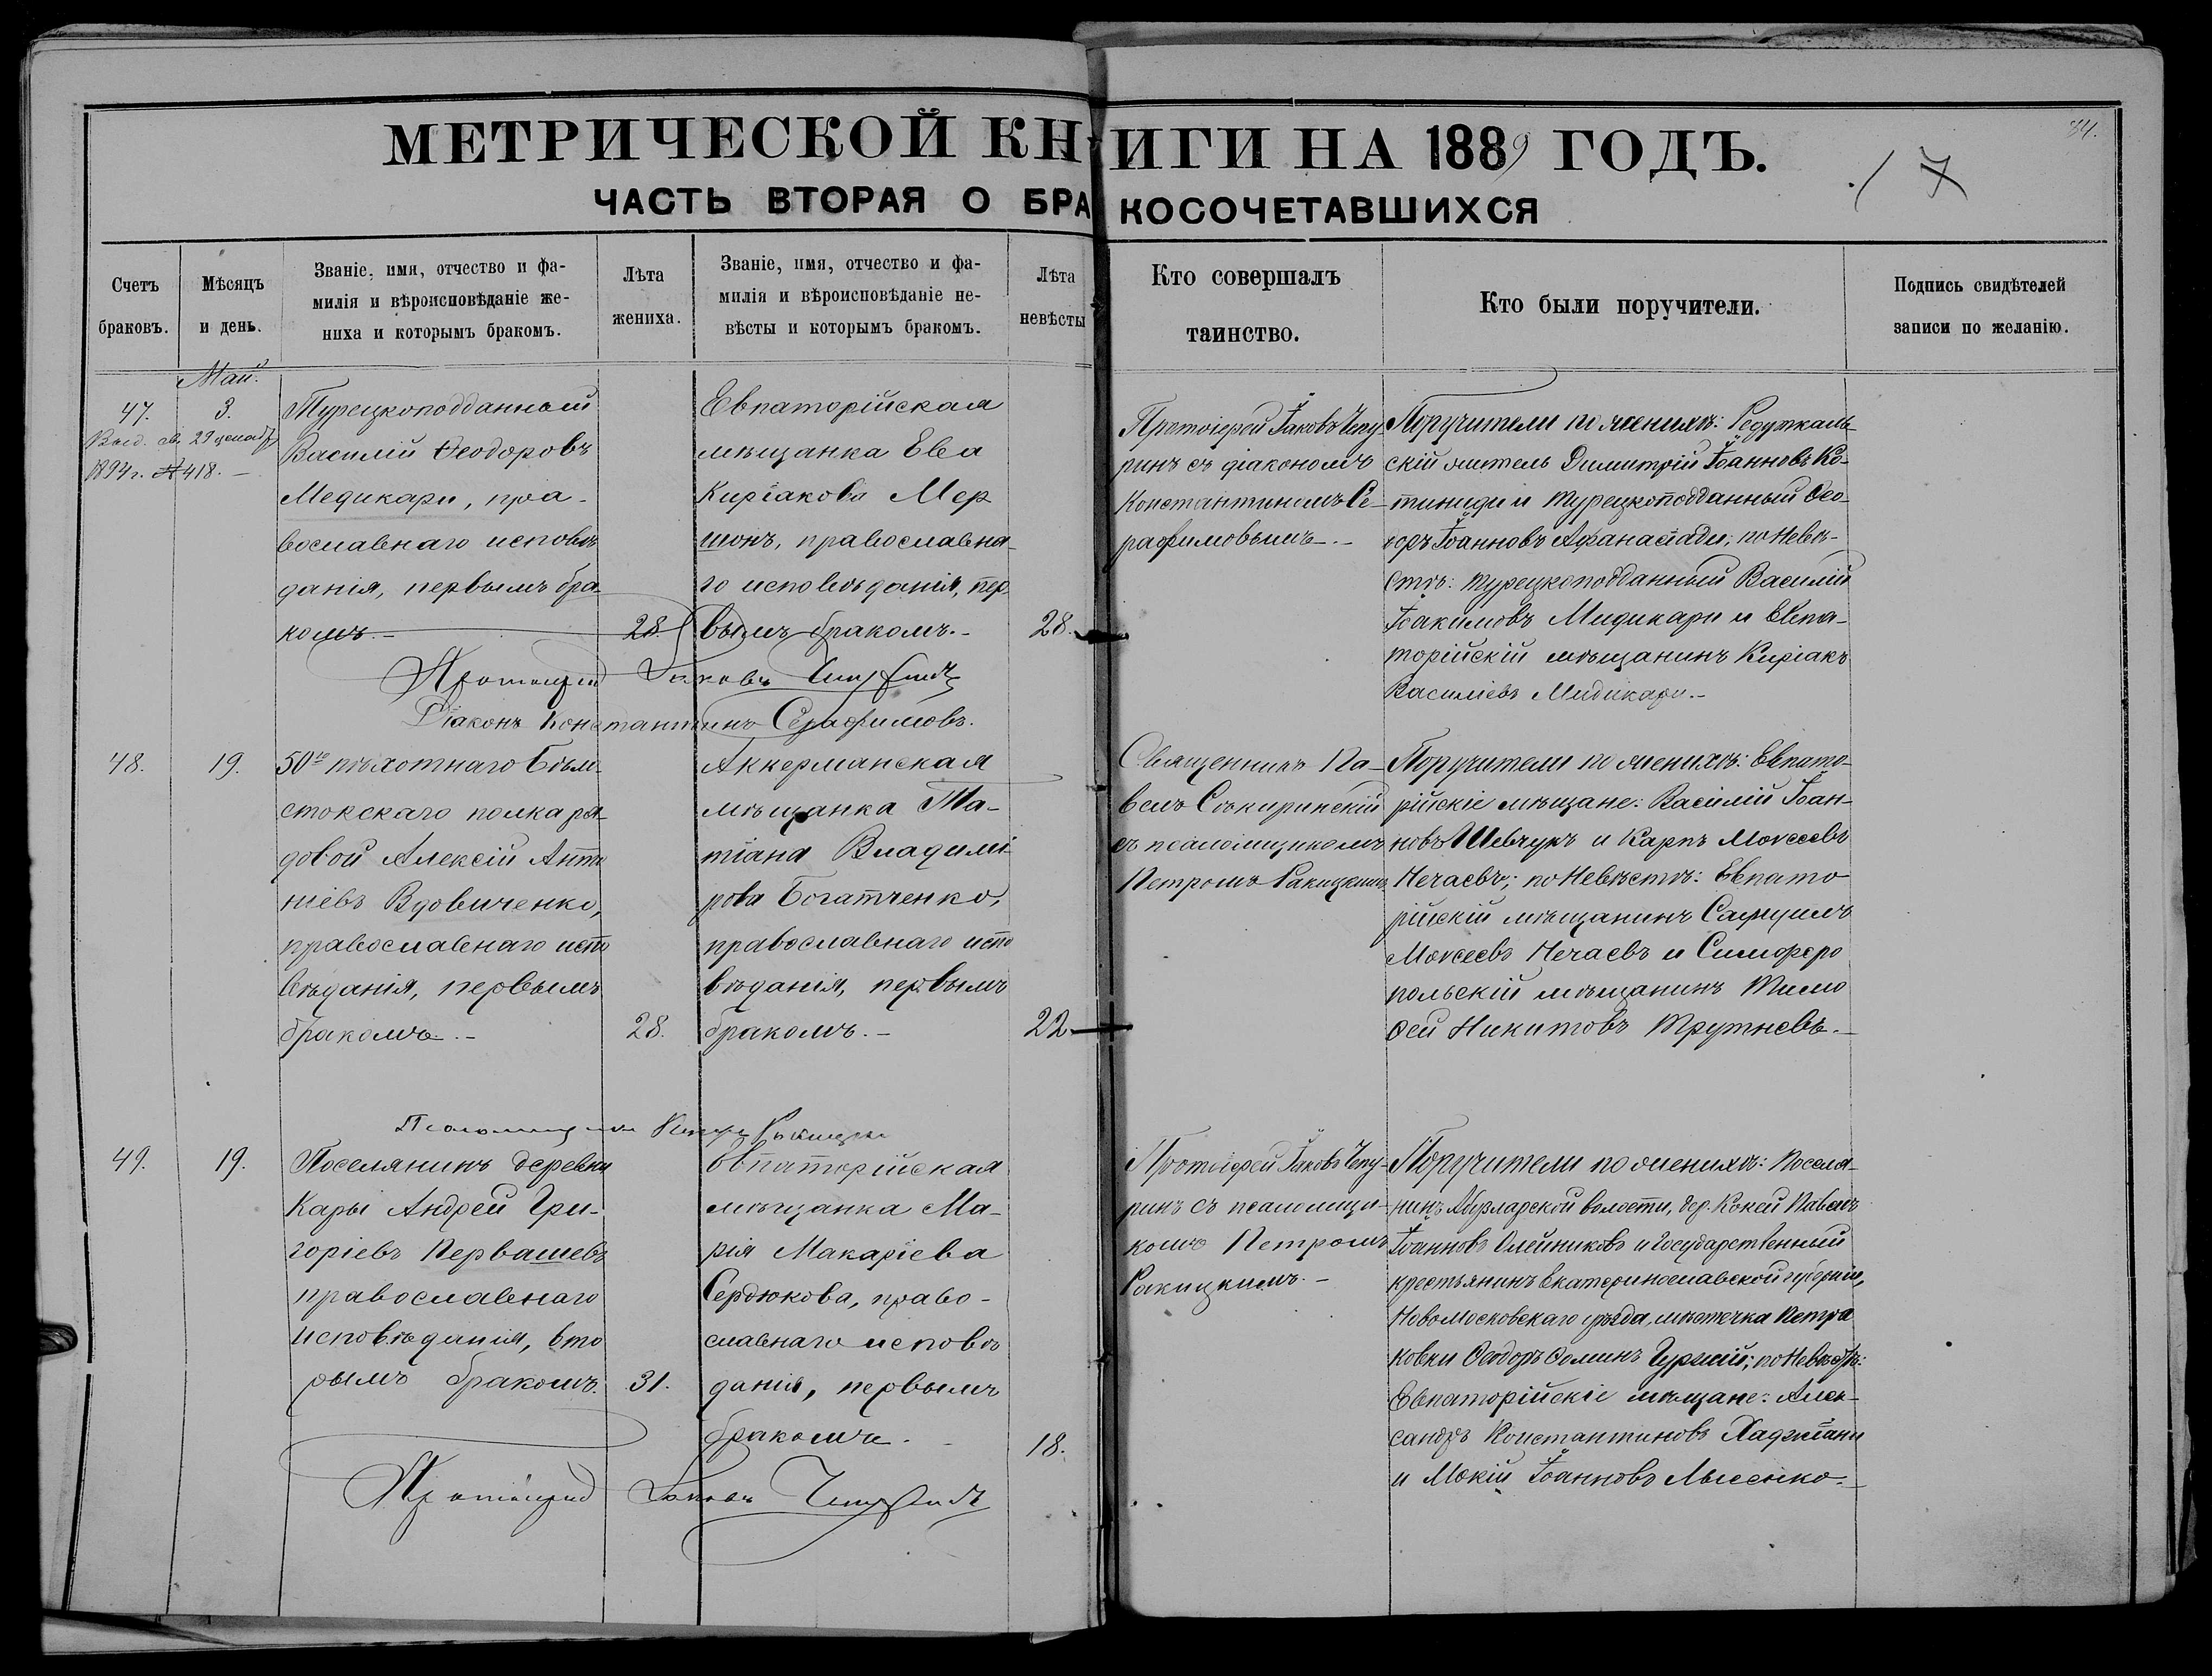 МЕТРИЧЕСКОЙ КНИГИ НА 1889 ГОДЪ.
34.
17
ЧАСТЬ ВТОРАЯ О БРАКОСОЧЕТАВШИХСЯ
Счетъ
браковъ.
Мѣсяцъ
и день.
Званіе, имя, отчество и фа-
милія и вѣроисповѣданіе же-
ниха и которымъ бракомъ.
Лѣта
жениха.
Званіе, имя, отчество и фа-
милія и вѣроисповѣданіе не-
вѣсты и которымъ бракомъ.
Лѣта
невѣсты
Кто совершалъ
таинство.
Кто были поручители.
Подпись свидѣтелей
записи по желанію.
Май.
47.
3.
Выд. св. 29 декабр.
1894 г. № 418. –
Турецкоподданный
Василій Ѳеодоровъ
Медикари, пра-
вославнаго исповѣ
данія, первымъ бра
комъ. –
28.
Евпаторійская
мѣщанка Ева
Киріакова Мер
шонъ, православна-
го исповѣданія, пер
вымъ бракомъ. –
28.
Протоіерей Іаковъ Чепу-
ринъ съ діакономъ
Константиномъ Се-
рафимовымъ. –
Поручители по женихѣ: Редуткаль-
скій житель Димитрій Іоанновъ Ко-
тиниди и турецкоподданный Ѳео-
доръ Іоанновъ Аѳанасіади; по невѣ-
стѣ: турецкоподданный Василій
Іоакимовъ Мидикари и Евпа-
торійскій мѣщанинъ Киріакъ
Василіевъ Мидикари. –
Протоіерей Іаковъ Чепуринъ
Діаконъ Константинъ Серафимовъ.
48.
19.
50го пѣхотнаго Бѣло-
стокскаго полка ря-
довой Алексій Анто
ніевъ Вдовиченко,
православнаго испо
вѣданія, первымъ
бракомъ. –
28.
Аккерманская
мѣщанка Та-
тіана Владимі-
рова Богатченко,
православнаго испо
вѣданія, первымъ
бракомъ. –
22
Священникъ Па-
велъ Сѣкиринскій
съ псаломщикомъ
Петромъ Ракицкимъ
Поручители по женихѣ: Евпато-
рійскіе мѣщане: Василій Іоан-
новъ Шевчукъ и Карпъ Моисеевъ
Нечаевъ; по невѣстѣ: Евпато-
рійскій мѣщанинъ
Моисеевъ Нечаевъ и Симферо
польскій мѣщанинъ Тимо
ѳей Никитовъ Трутневъ. –
Псаломщикъ Петръ Ракицкій
49.
19.
Поселянинъ деревни
Кары Андрей Гри-
горіевъ Первашевъ
православнаго
исповѣданія, вто
рымъ бракомъ.
31.
Евпаторійская
мѣщанка Ма-
рія Макаріева
Сердюкова, право-
славнаго исповѣ
данія, первымъ
бракомъ. –
18.
Протоіерей Іаковъ Чепу-
ринъ съ псаломщи-
комъ Петромъ
Ракицкимъ. –
Поручители по женихѣ: Поселя-
нинъ волости, дер. Павелъ
Іоанновъ Олейниковъ и Государственный
крестьянинъ Екатеринославской губерніи,
Новомосковскаго уѣзда, мѣстечка Петра
ковки Ѳеодоръ Ѳоминъ по невѣстѣ:
Евпаторійскіе мѣщане: Алек-
сандръ Константиновъ
и Мокій Іоанновъ Лысенко. –
Протоіерей Іаковъ Чепуринъ